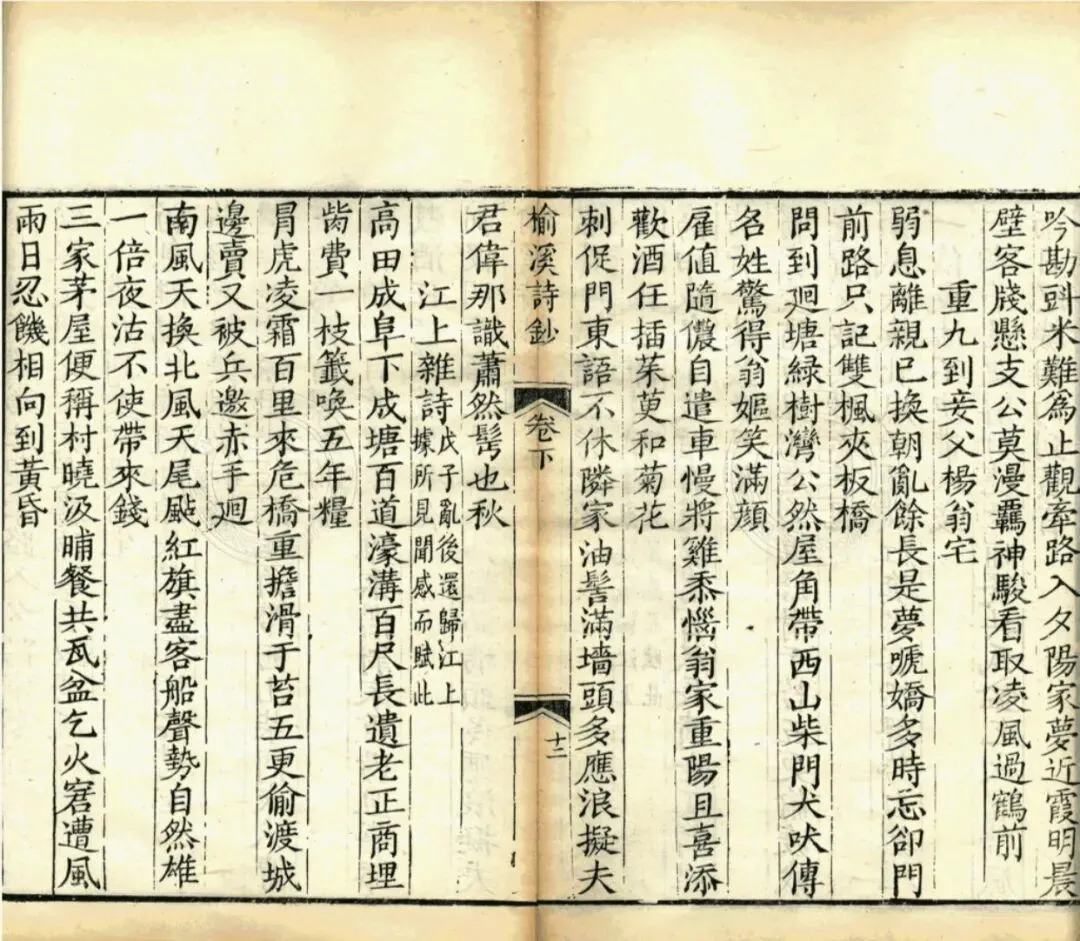 吟勘斗米難為止觀牽路入夕陽家夢近霞明晨
壁客牋懸支公莫漫羈神駿看取凌風過鶴前
重九到妾父楊翁宅
弱息離親已換朝亂餘長是夢唬嬌多時忘卻門
前路只記雙楓夾板橋
問到廻塘綠樹灣公然屋角帶西山柴門犬吠傳
名姓驚得翁嫗笑滿顔
雇值隨儂自遣車慢將雞黍惱翁家重陽且喜添
歡酒任插茱萸和菊花
刺促門東語不休隣家油髻滿墻頭多應浪擬夫
榆溪詩鈔 卷下 十二
君偉那識蕭然髩也秋
江上雜詩戊子亂後還歸江上
據所見聞感而賦此
高田成阜下成塘百道濠溝百尺長遺老正商埋
齒費一枝籤喚五年糧
胃虎凌霜百里來危橋重擔滑于苔五更偷渡城
邊賣又被兵邀赤手廻
南風天換北風天尾颭紅旗盡客船聲勢自然雄
一倍夜沽不使帶來錢
三家茅屋便稱村曉汲晡餐共瓦盆乞火窘遭風
雨日忍饑相向到黃昏